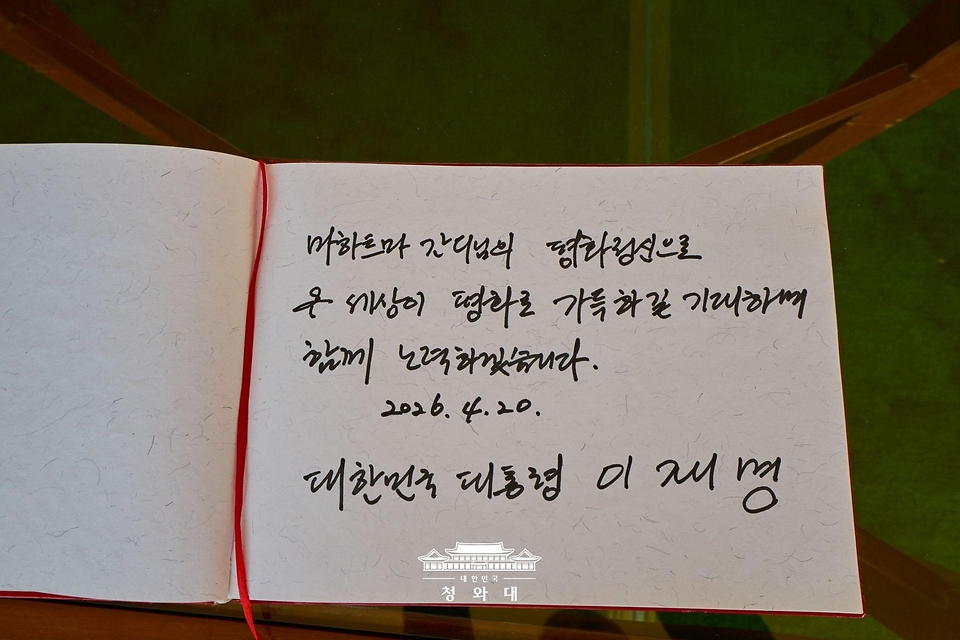 마하트마 간디님의 평화정신으로
온 세상이 평화로 가득하길 기대하며
함께 노력하겠습니다.
2026. 4. 20.
대한민국 대통령 이재명
대한민국
청와대